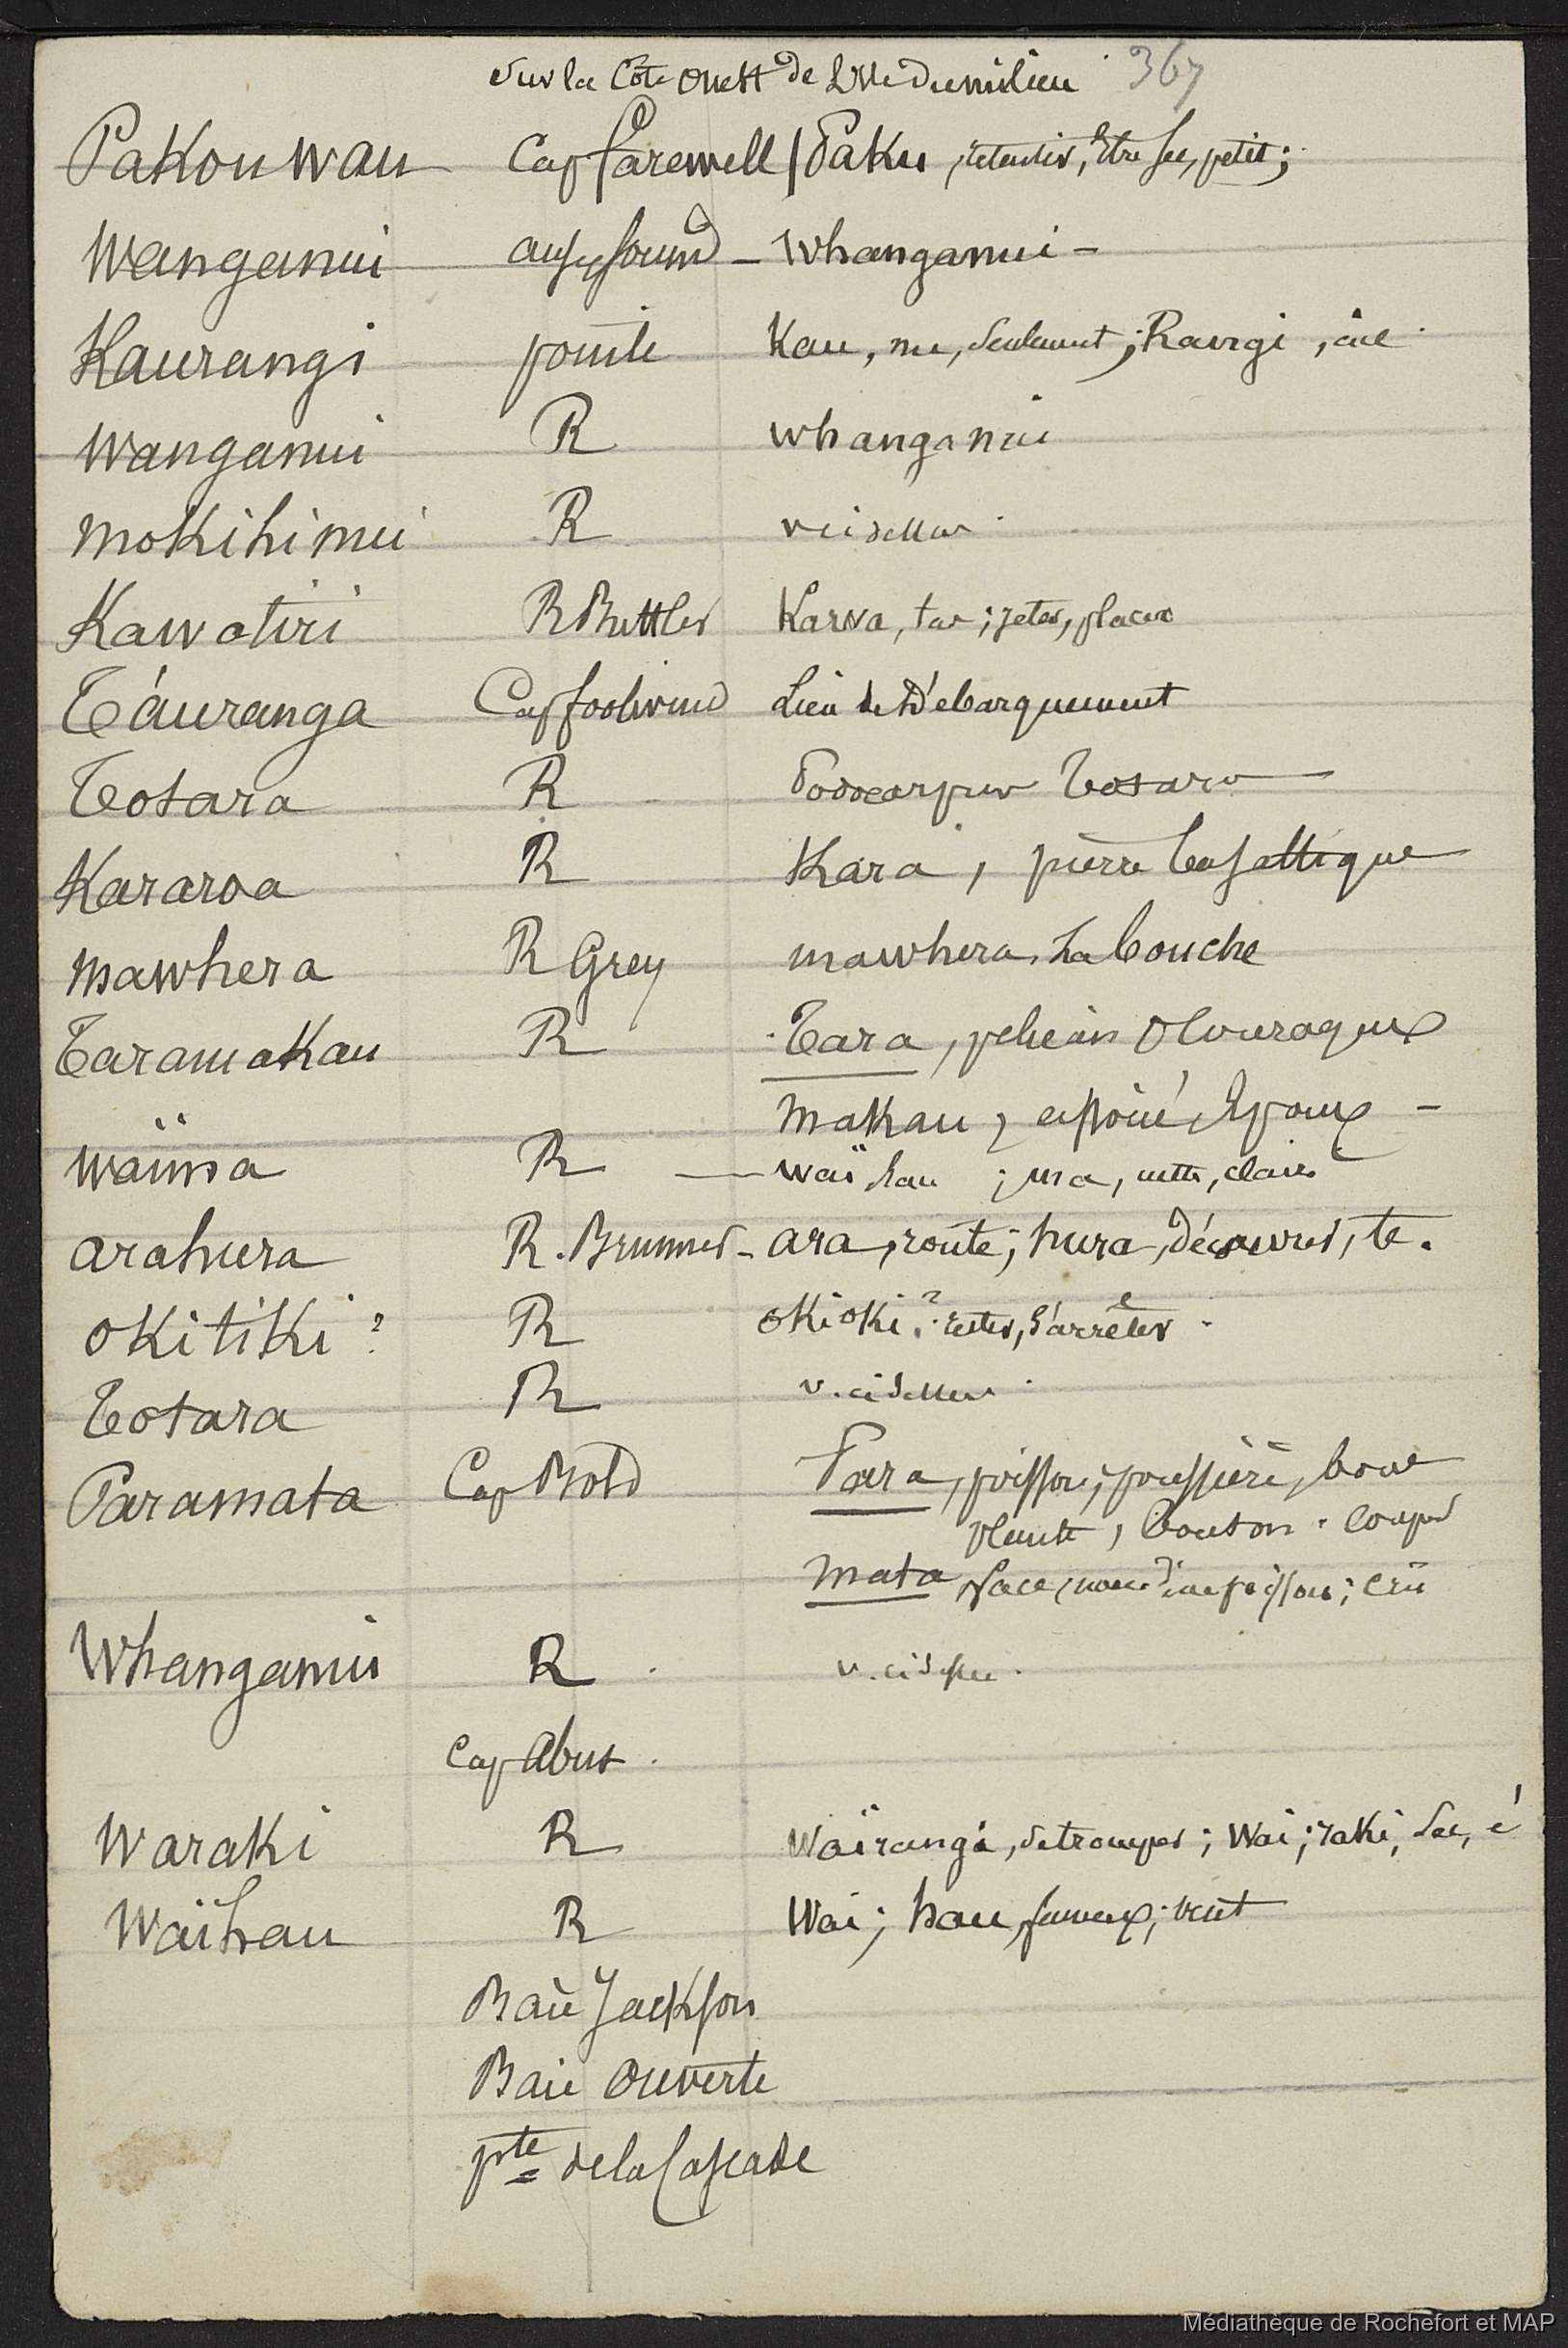 Sur la Côte Ouest de L'Ile du milieu 367
Pakouwau Cap farewell / Paku, retentir, Etre sec, petit;
Wanganui - Whanganui -
Kaurangi pointe Kau, nu, seulement; Rangi, ciel
Wanganui R Whanganui
Mokihinui R v ci dessus
Kawatiri R Buttler Kawa, ; jeter, placer
Tauranga Cap foolwind Lieu de Débarquement
Totara R Podocarpus Totara
Kararoa R Kara, pierre basaltique
Mawhera R Grey mawhera, La bouche
Taramakau R Tara, 
Makau, Epoux -
Waïma R - Waï eau ; ma, nette, claire
Arahura R. Brunner - ara, route; hura, découvrir, te.
Okitiki ? R Okioki ? rester, s'arrêter
Totara R v. ci dessus
Paramata Cap Bold Para, poisson; poussière, boue
plante, bouton. Couper
Mata, face, nom d'une poisson; Crû
Whanganui R v. ci dessus
Cap Abut
Waraki R Waïrangi, se tromper; Wai; raki, sec,
Waïhau R Wai; hau, fameux; vent
Baie Jackson
Baie Ouverte
pte de la Cascade
Médiathèque de Rochefort et MAP